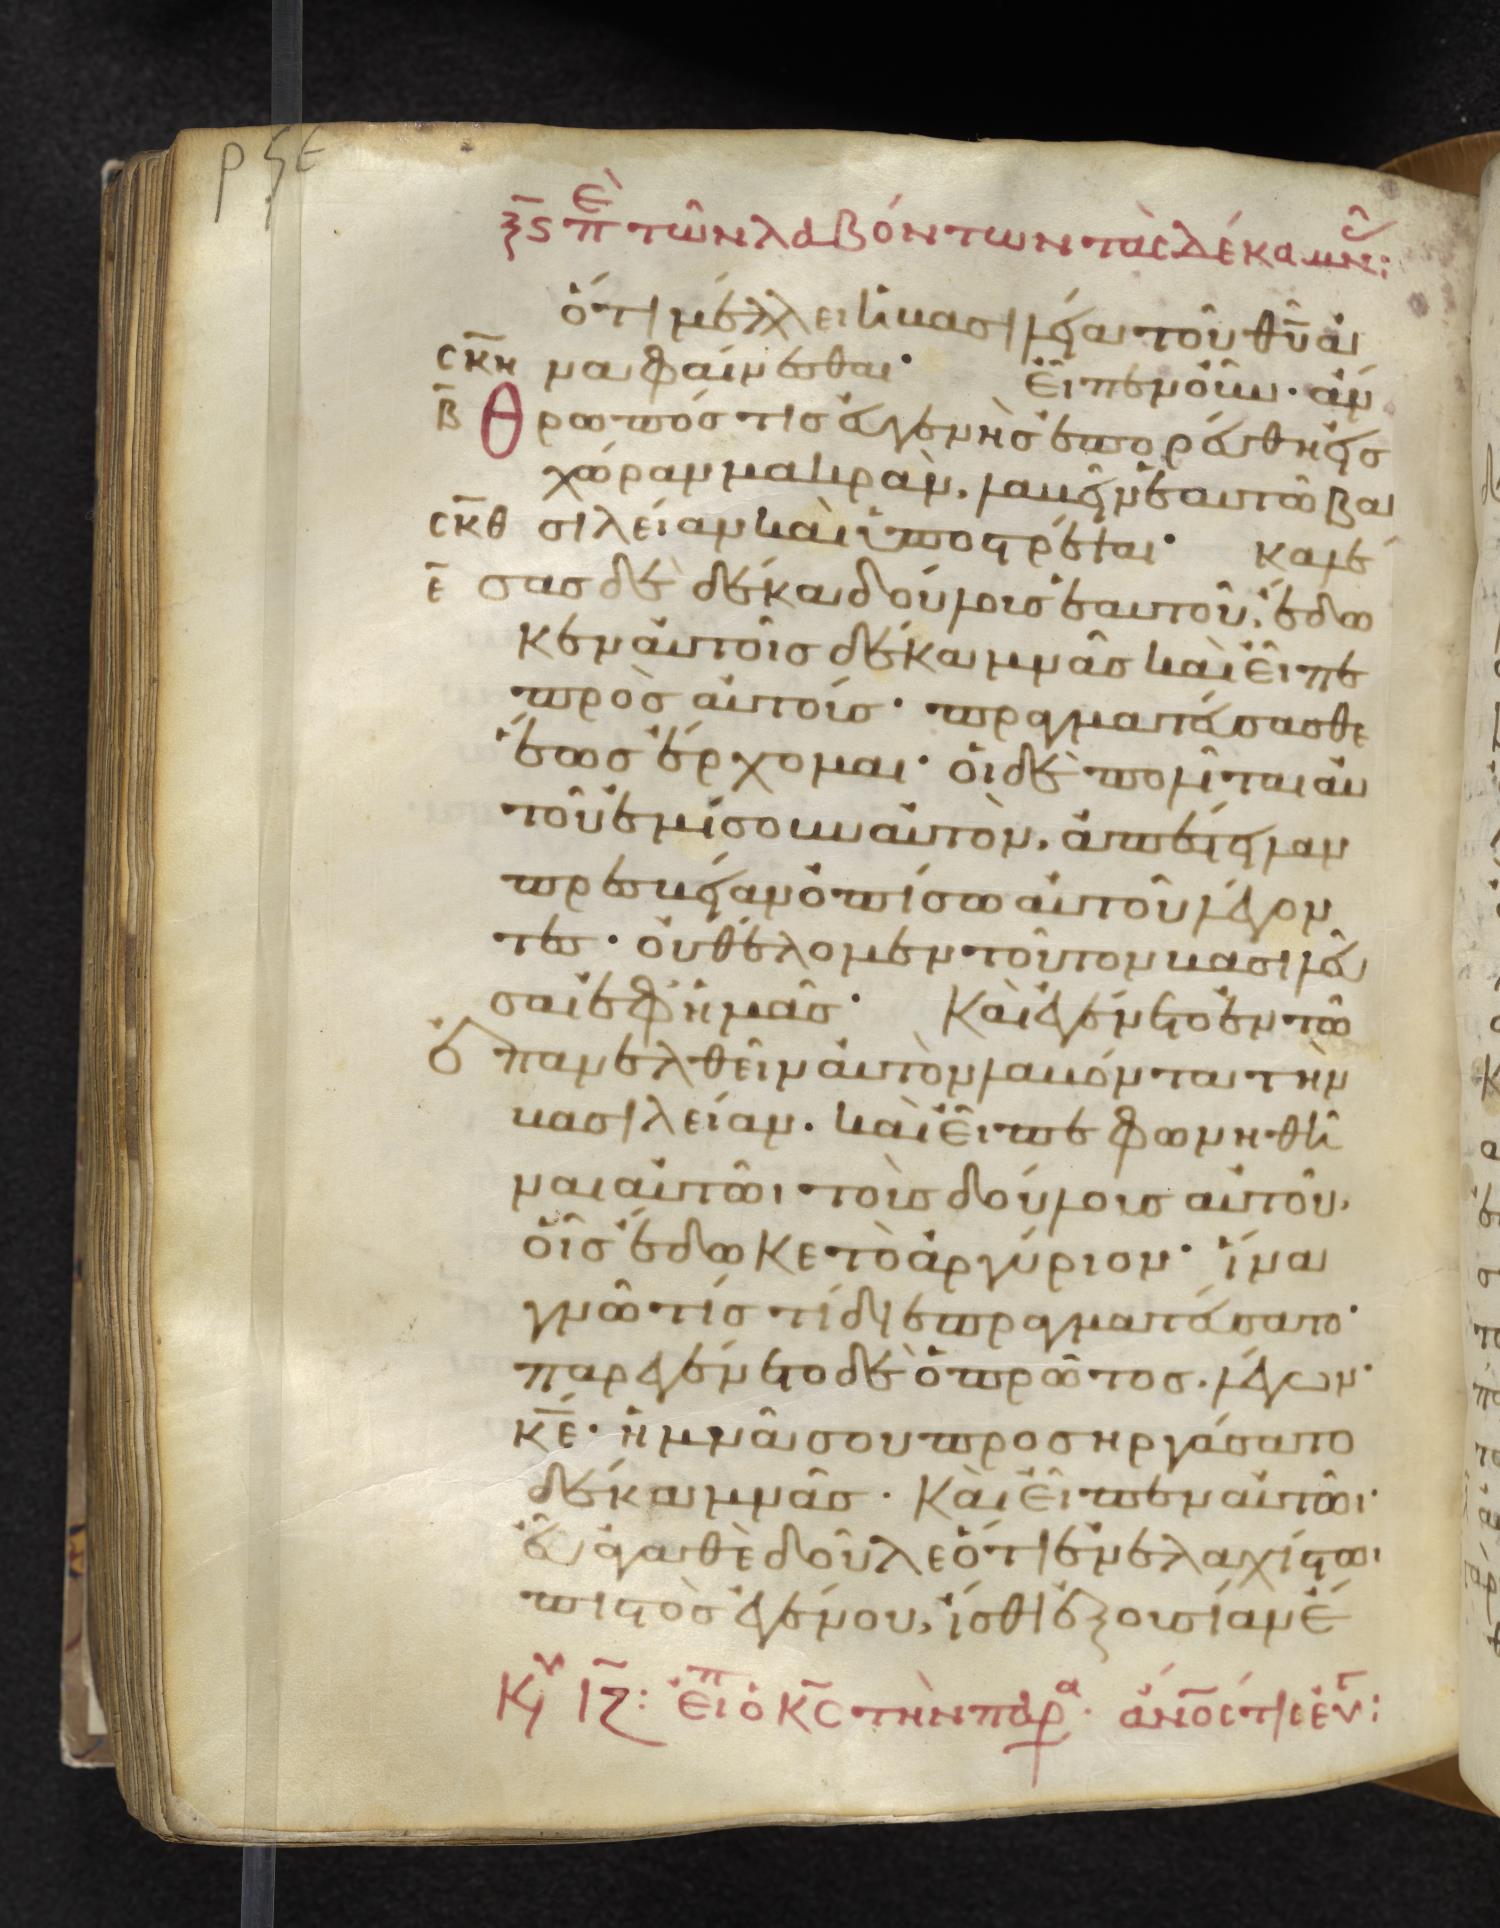 ρϟε
ξ̄ϛ πὲ τῶν λαβόντων τὰς δέκα μν͂ς:
ὅτι μέλλει ἡ βασιλεία τοῦ θῡ ἀ
σκ̄η ναφαίνεσθαι· Εἶπεν οὖν· ἄν
β̄ Θρωπός τις εὐγενὴς ἐπορεύθη εἰς
χώραν μακρὰν, λαβεῖν ἑαυτῶ βα
σκ̄θ σιλείαν καὶ ὑποστρέψαι· Καλέ
ε̄ σας δὲ δέκα δούλους ἑαυτοῦ, ἔδω
κεν αὐτοῖς δέκα μνᾶς καὶ εἶπε
πρὸς αὐτούς· πραγματεύσασθε
ἕως ἔρχομαι· οἱ δὲ πολῖται αὐ
τοῦ ἐμίσουν αὐτὸν, ἀπέστειλαν
πρεσβείαν ὀπίσω αὐτοῦ λέγον
τες· οὐ θέλομεν τοῦτον βασιλεῦ
σαι ἐφ ἡμᾶς· Καὶ ἐγένετο ἐν τῶ
ἐπανελθεῖν αὐτὸν λαβόντα τὴν
βασιλείαν. καὶ εἶπε φωνηθῆ
ναι αὐτῶι τοὺς δούλους αὐτοῦ,
οἷς ἔδωκε τὸ ἀργύριον· ἵνα
γνῶ τίς τί διεπραγματεύσατο·
παρεγένετο δὲ ὁ πρῶτος. λέγων·
κ̄ε· ἡ μνᾶ σου προσηργάσατο
δέκα μνᾶς. Καὶ εἶπεν αὐτῶι·
εὖ ἀγαθὲ δοῦλε ὅτι ἐν ἐλαχίστωι
πιστὸς ἐγένου, ἴσθι ἐξουσίαν ἔ
Κυ ῙΖ: εἶπ ὁ Κ̄Ϲ τὴν παρα. ἄν̄ος τις εὐγ: